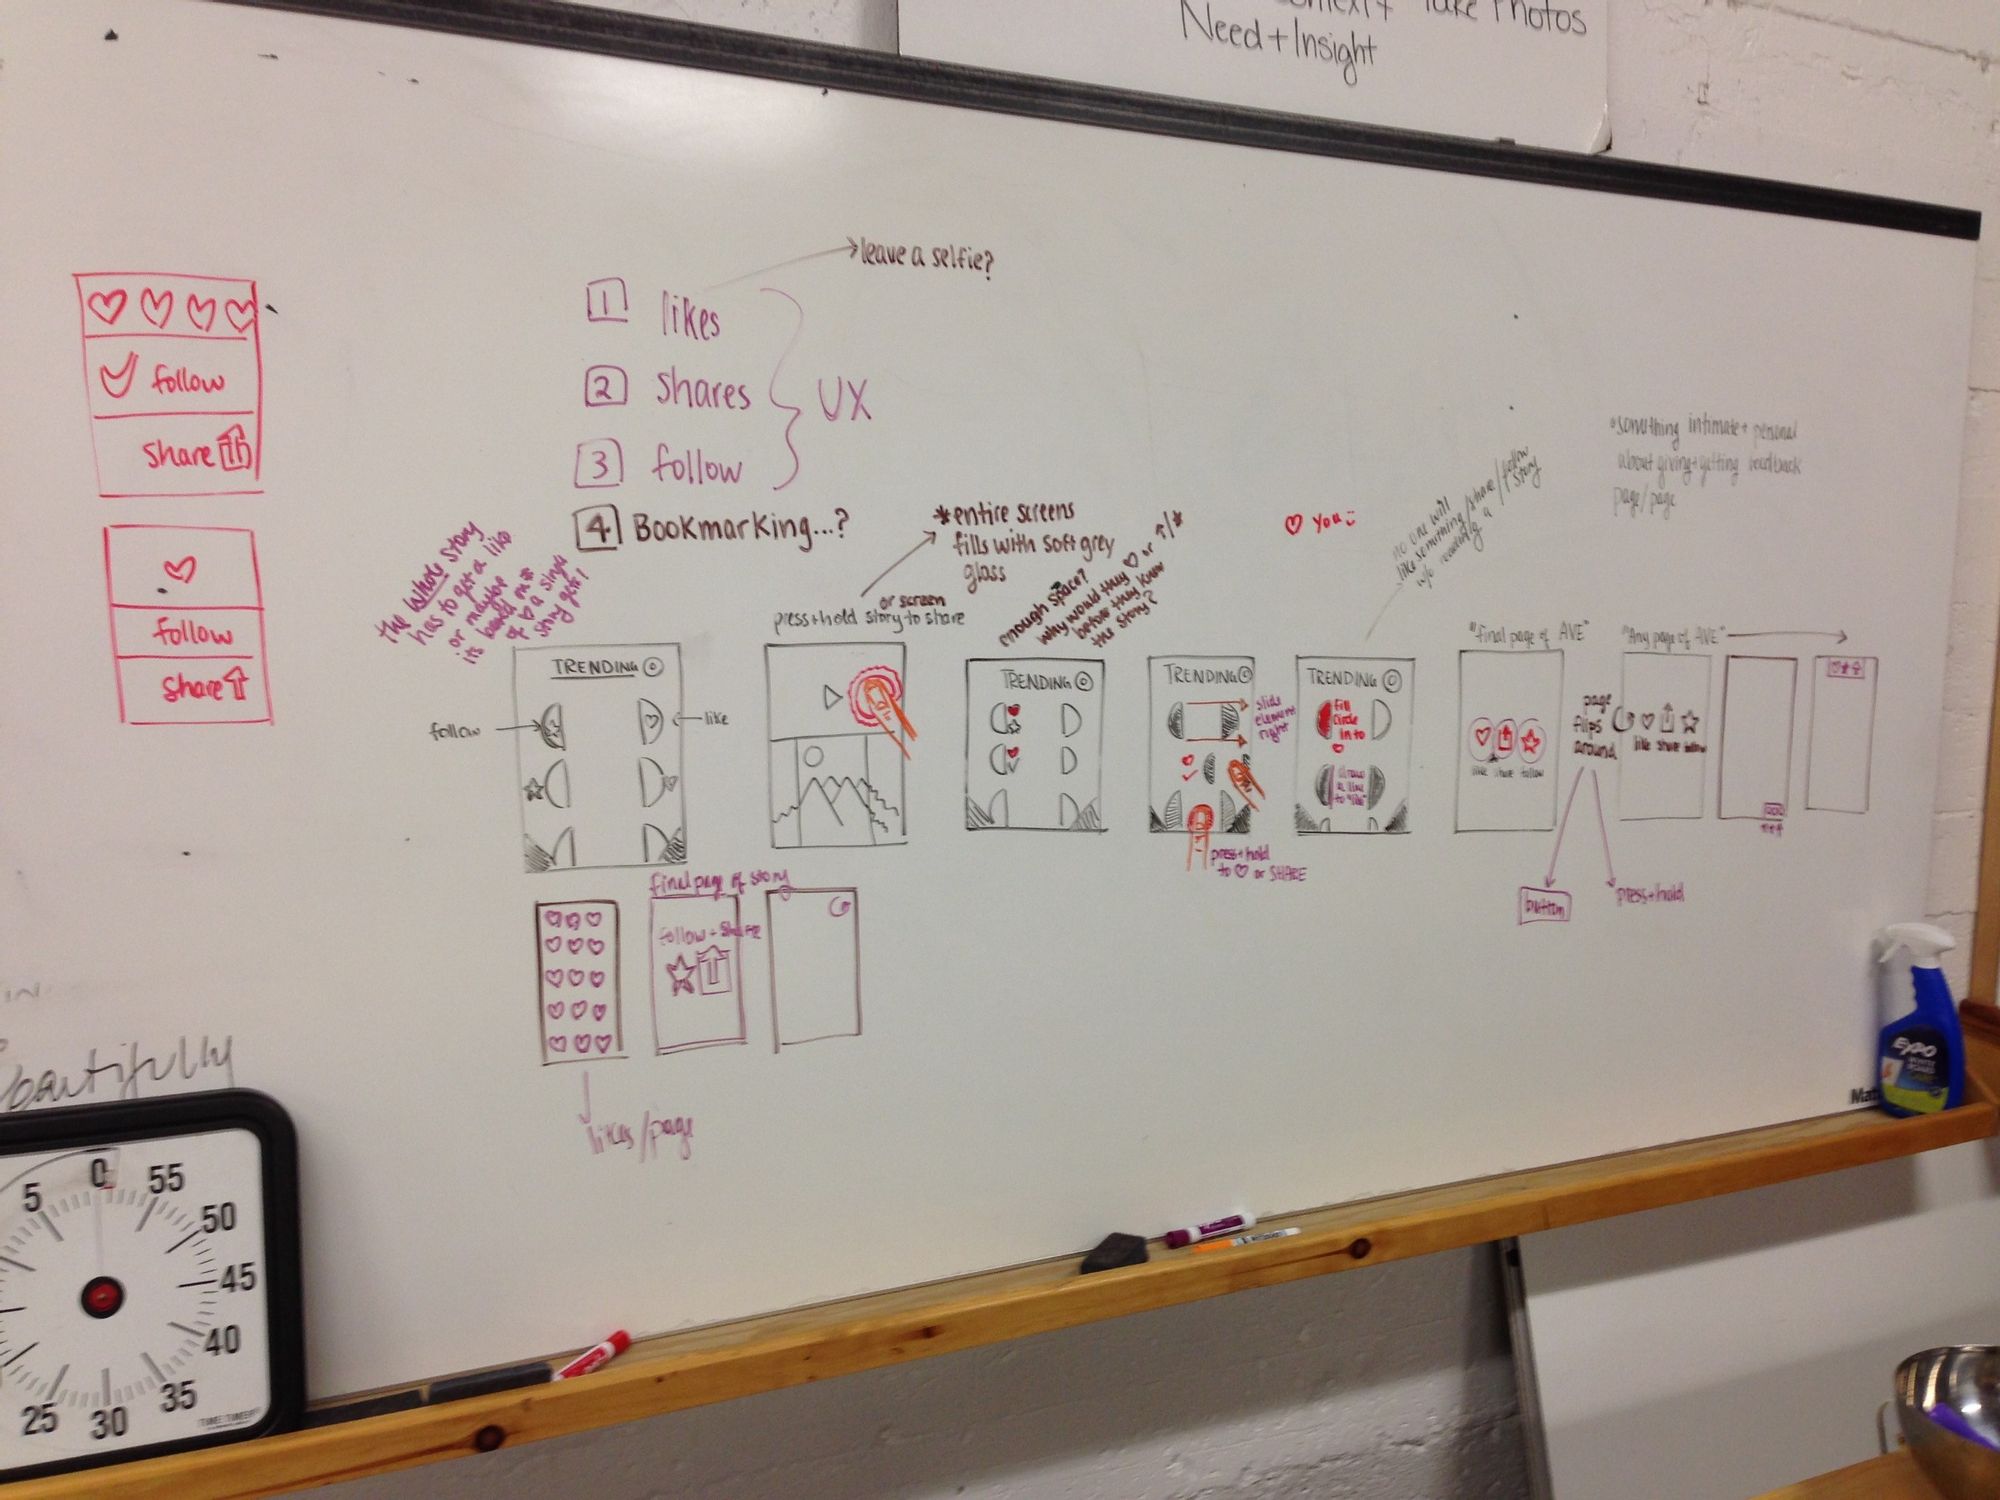 Take Photos
Need+Insight
→leave a selfie?
1 likes
2 shares
3 follow
UX
4 Bookmarking...?
follow
share
follow
share
the Whole story
has to get a like
or maybe
its based on #
of ♡ a single
story gets!
*entire screens
fills with soft grey
glass
or screen
press+hold story to share
enough space?
why would they ♡ or ↑/*
before they know
the story?
♡ you
no one will
like something/share/follow
w/o reading a story
*something intimate + personal
about giving+getting feedback
page/page
TRENDING
follow
like
TRENDING
TRENDING
slide
element
right
press+hold
to ♡ or SHARE
TRENDING
fill
circle
into
♡
draw
a line
to "like"
"final page of AVE"
like share follow
page
flips
around
button
press+hold
"Any page of AVE"
like share follow
final page of story
follow + share
likes/page
beautifully
0
5
55
50
45
40
35
30
25
TIME TIMER
EXPO
WHITE
BOARD
CARE